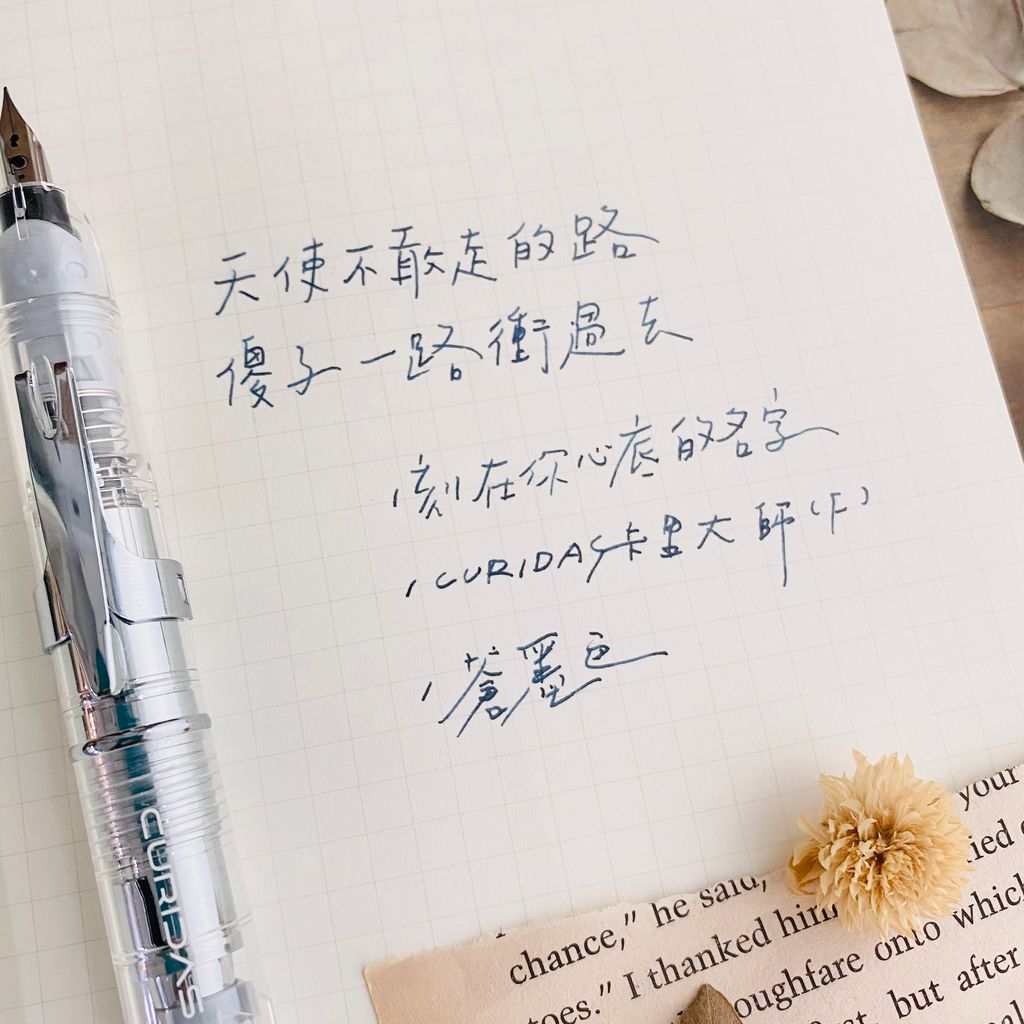 天使不敢走的路
傻子一路衝過去
/刻在你心底的名字
/CURIDAS卡里大師(F)
/蒼墨色
CURIDAS
your
chance," he said,
toes." I thanked him
oughfare onto which
but after